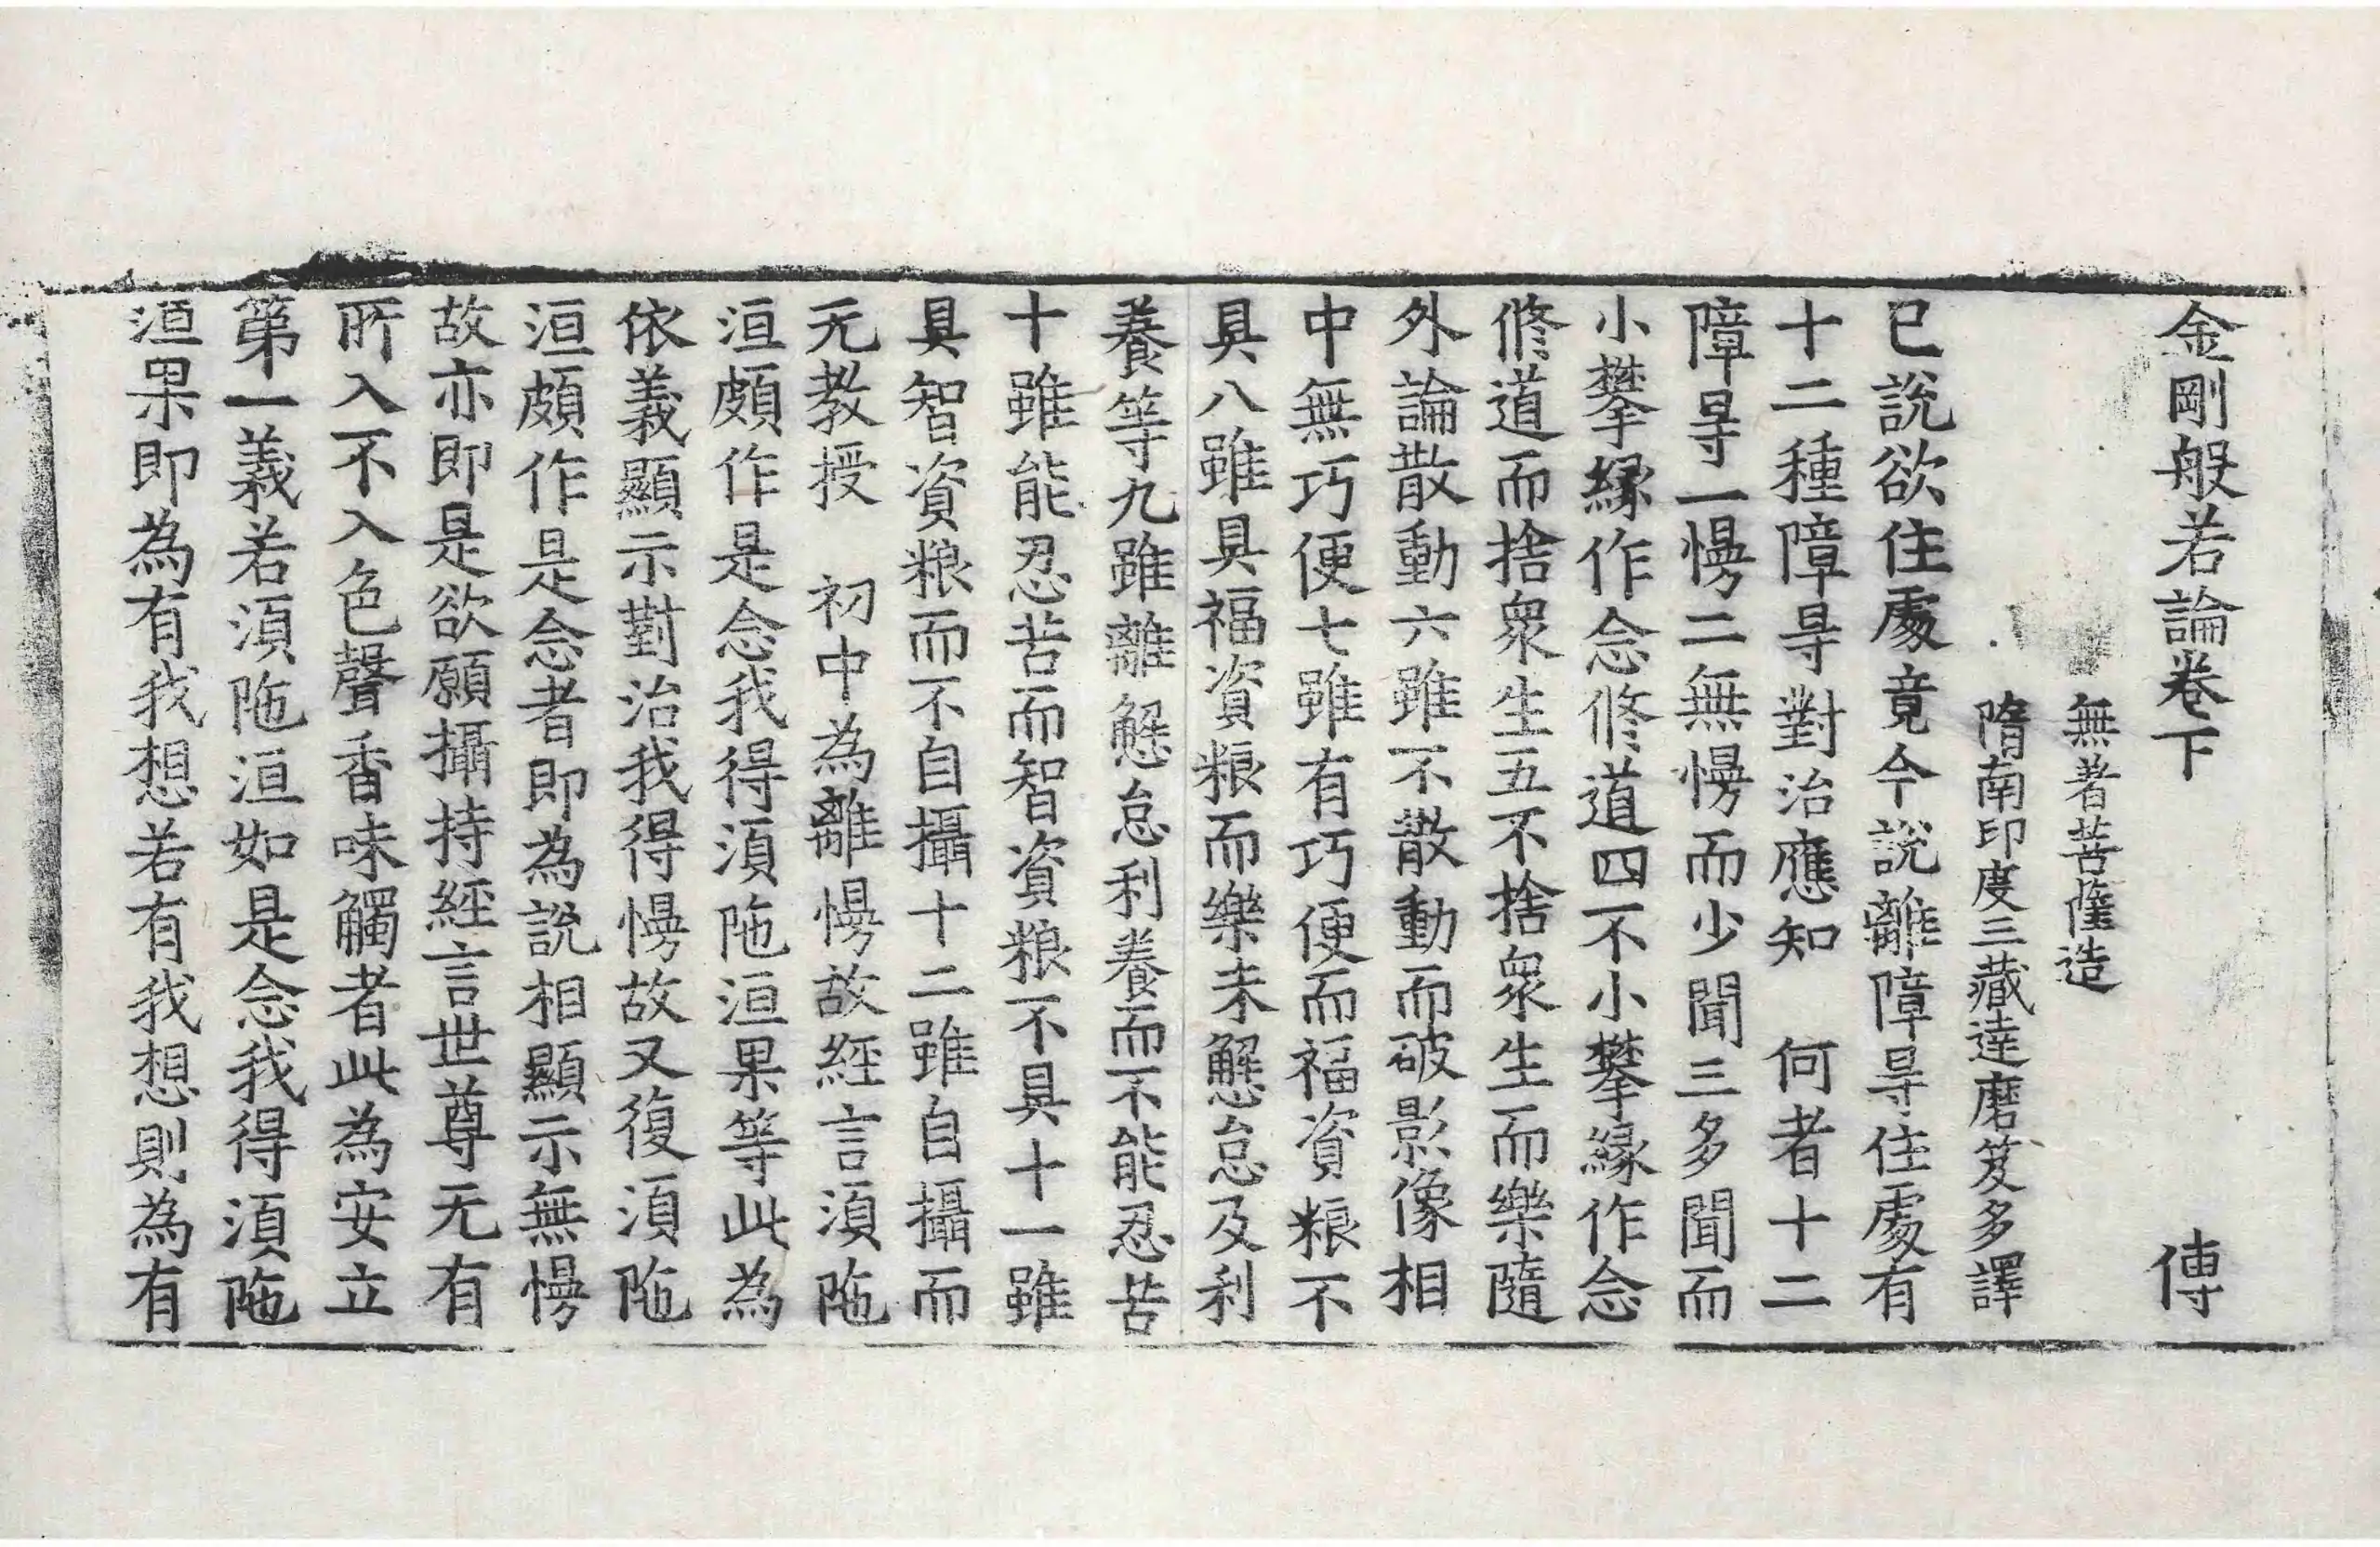 金剛般若論卷下 傳
無著菩薩造
隋南印度三藏達磨笈多譯
已說欲住處竟今說離障㝵住處有
十二種障㝵對治應知 何者十二
障㝵一慢二無慢而少聞三多聞而
小攀緣作念修道四不小攀緣作念
修道而捨衆生五不捨衆生而樂隨
外論散動六雖不散動而破影像相
中無巧便七雖有巧便而福資粮不
具八雖具福資粮而樂未懈怠及利
養等九雖離懈怠利養而不能忍苦
十雖能忍苦而智資粮不具十一雖
具智資粮而不自攝十二雖自攝而
无教授 初中為離慢故經言湏陁
洹頗作是念我得湏陁洹果等此為
依義顯示對治我得慢故又復湏陁
洹頗作是念者即為說相顯示無慢
故亦即是欲願攝持經言世尊无有
所入不入色聲香味觸者此為安立
第一義若湏陁洹如是念我得湏陁
洹果即為有我想若有我想則為有